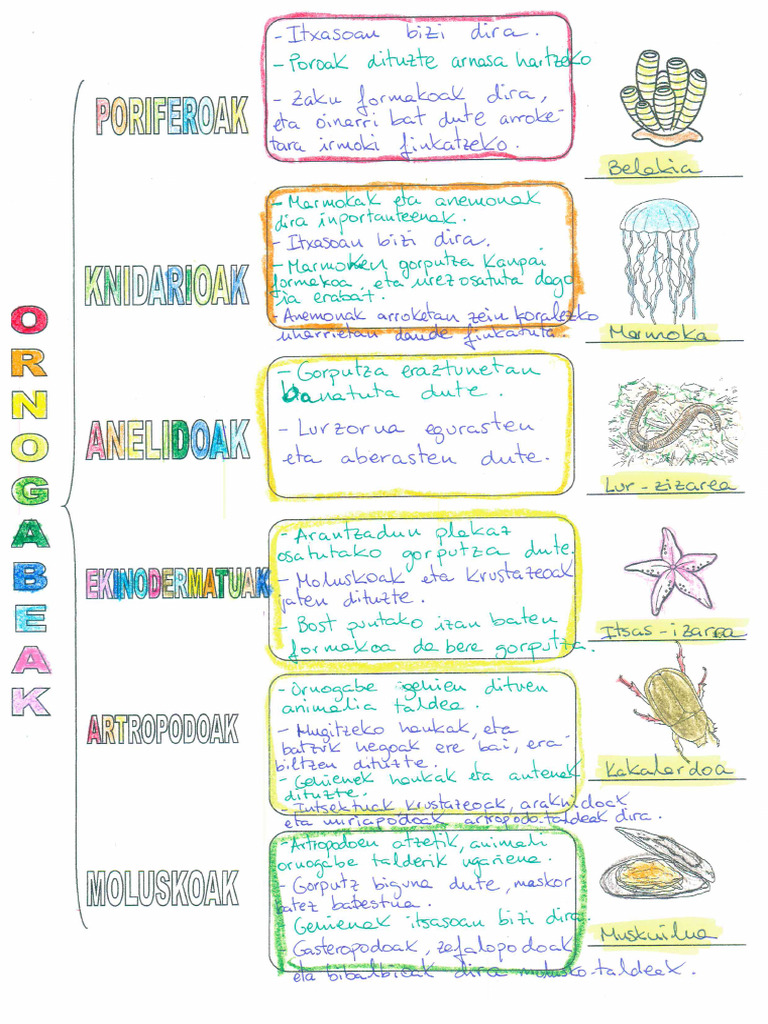 ORNOGABEAK
PORIFEROAK
- Itxasoan bizi dira.
- Poroak dituzte arnasa hartzeko
- Zaku formakoak dira,
eta oinarri bat dute arroke-
tara irmoki finkatzeko.
Belakia
KNIDARIOAK
- Marmokak eta anemonak
dira inportanteenak.
- Itxasoan bizi dira.
- Marmoken gorputza kanpai
formakoa, eta urez osatuta dago
ia erabat.
- Anemonak arroketan zein koralezko
uharrietan daude finkatuta.
Marmoka
ANELIDOAK
- Gorputza eraztunetan
banatuta dute.
- Lurzorua egurasten
eta aberasten dute.
Lur-zizarea
EKINODERMATUAK
- Arantzadun plakaz
osatutako gorputza dute.
- Moluskoak eta krustazeoak
jaten dituzte.
- Bost puntako izan baten
formakoa da bere gorputza.
Itsas-izarra
ARTROPODOAK
- Ornogabe gehien dituen
animalia taldea.
- Mugitzeko hankak, eta
batzuk hegoak ere bai, era-
biltzen dituzte.
- Gehienek hankak eta antenak
dituzte.
- Intsektuak krustazeoak, araknidoak
eta miriapodoak artropodo-taldeak dira.
Kakalardoa
MOLUSKOAK
- Artropodoen atzetik, animali
ornogabe talderik ugariena.
- Gorputz biguna dute, maskor
batez babestua.
- Gehienak itsasoan bizi dira.
- Gasteropodoak, zefalopodoak
eta bibalbioak dira molusko-taldeak.
Muskuilua